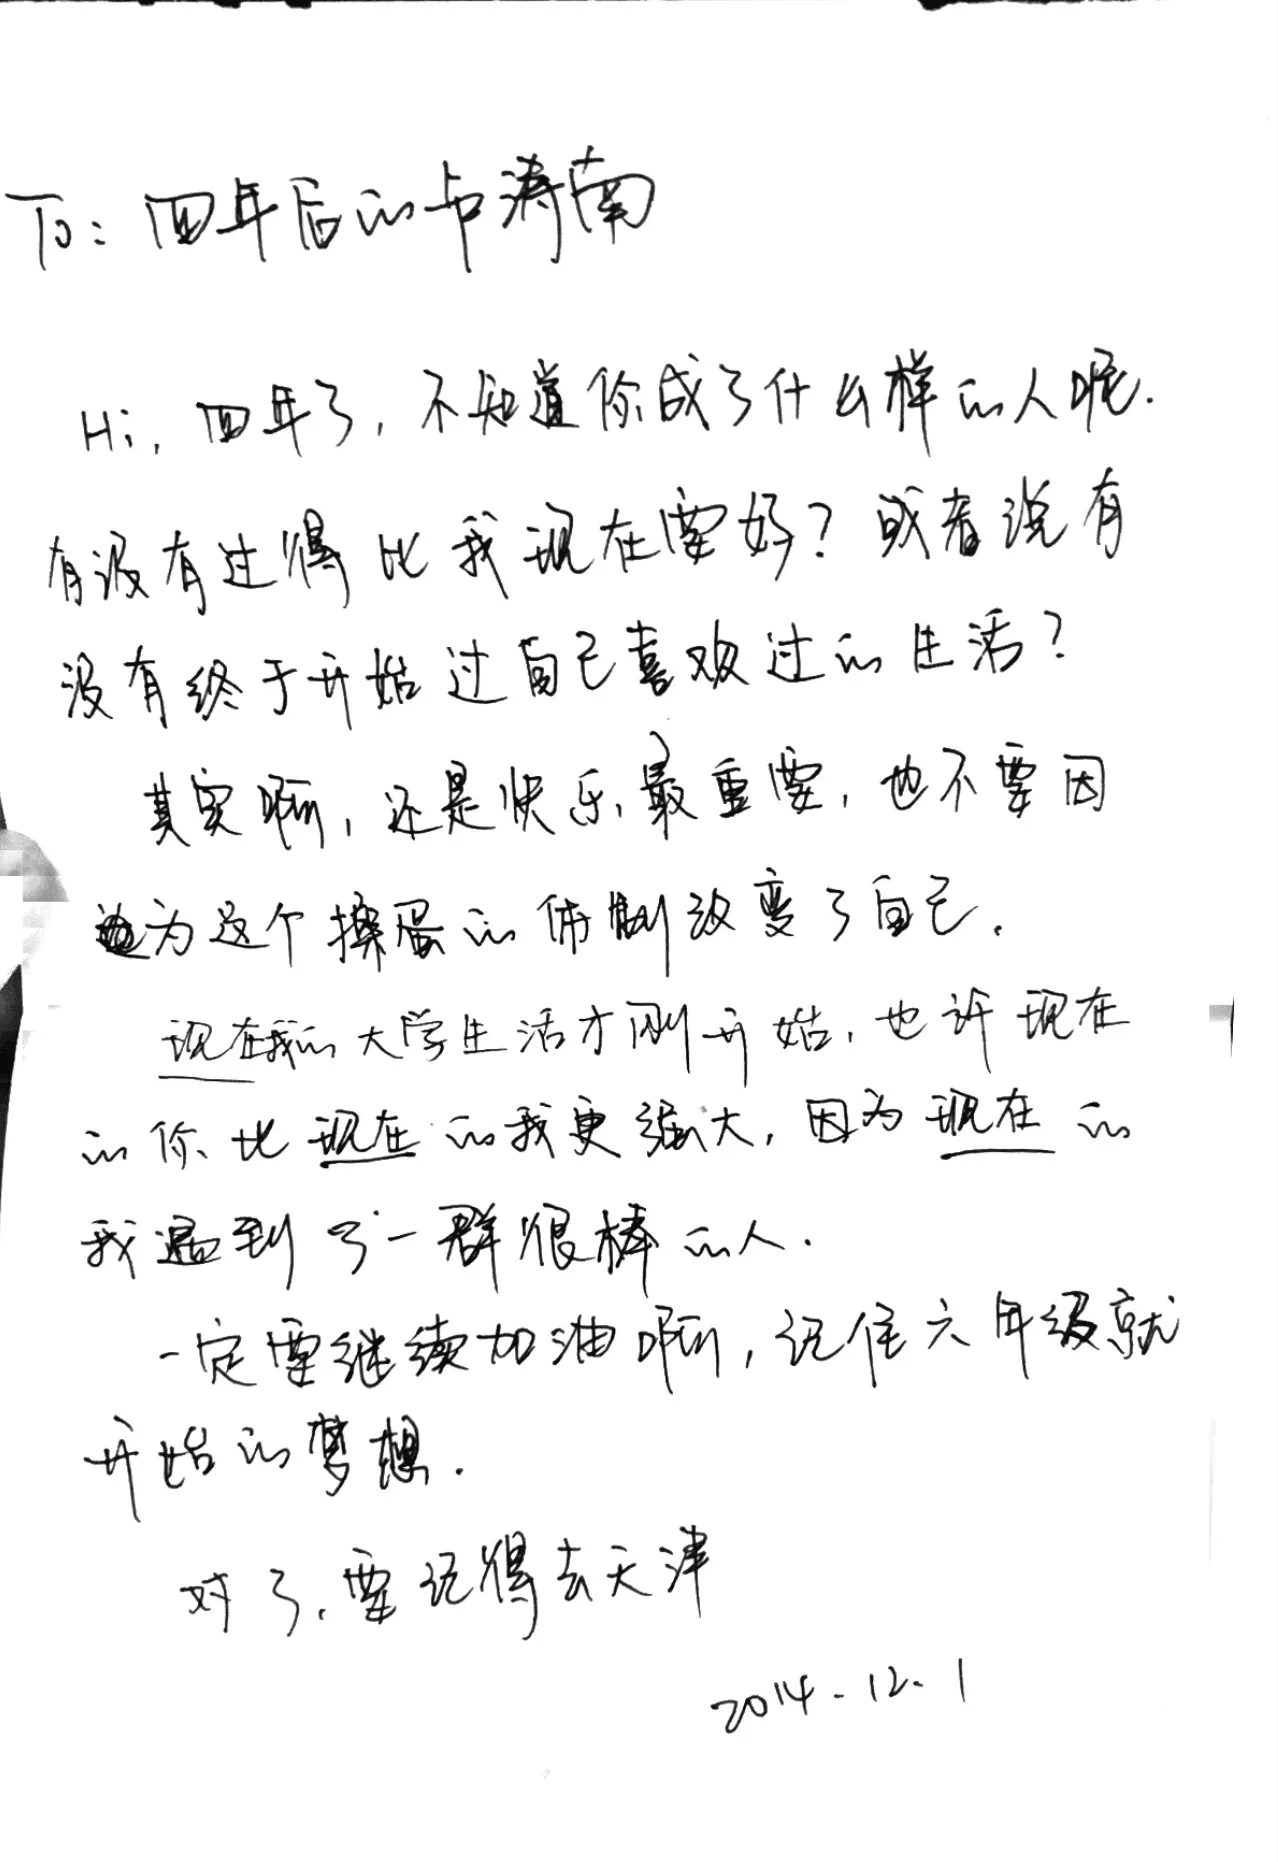 To：四年后的卢涛南
Hi，四年了，不知道你成了什么样的人呢．
有没有过得比我现在要好？或者说有
没有终于开始过自己喜欢过的生活？
其实啊，还是快乐最重要，也不要因
为这个操蛋的体制改变了自己．
现在我的大学生活才刚开始，也许现在
的你比现在的我更强大，因为现在的
我遇到了一群很棒的人．
一定要继续加油啊，记住六年级就
开始的梦想．
对了，要记得去天津
2014-12-1